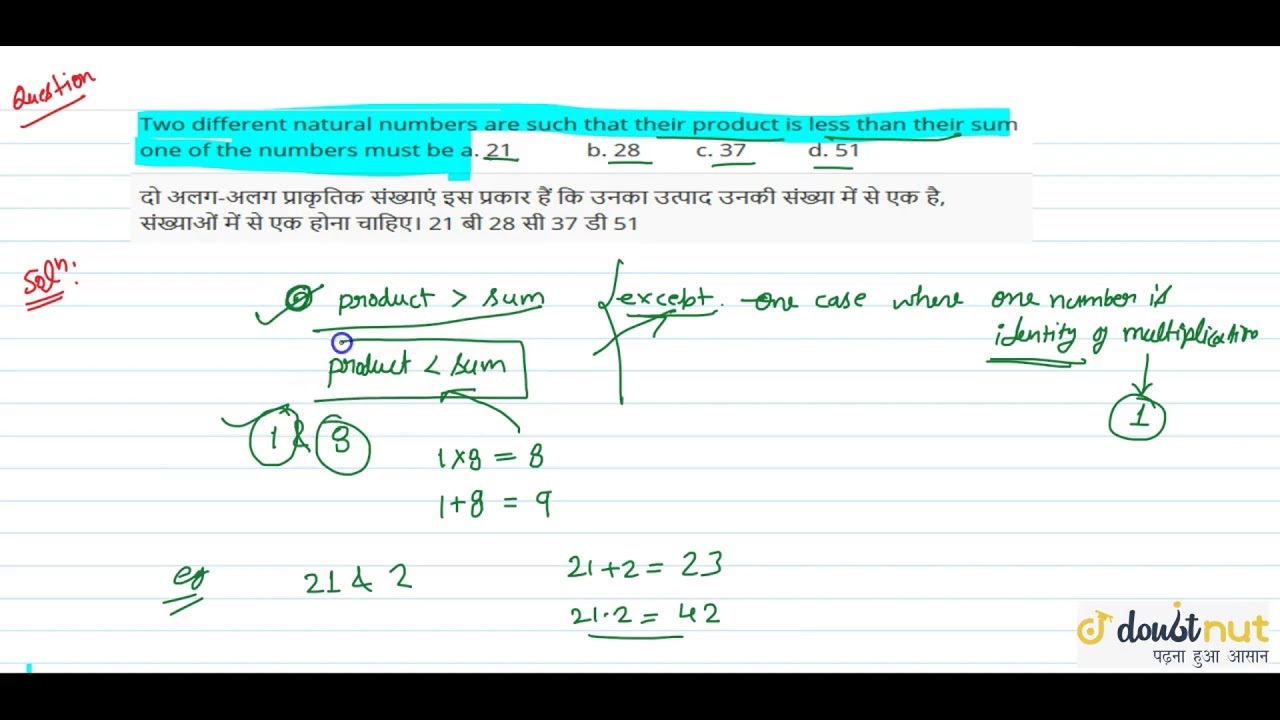 Question
Two different natural numbers are such that their product is less than their sum
one of the numbers must be a. 21 b. 28 c. 37 d. 51
दो अलग-अलग प्राकृतिक संख्याएं इस प्रकार हैं कि उनका उत्पाद उनकी संख्या में से एक है,
संख्याओं में से एक होना चाहिए। 21 बी 28 सी 37 डी 51
Solⁿ:
product > sum except. one case where one number is
identity of multiplication
product < sum
1
1 & 8
1×8 = 8
1+8 = 9
eg 21 & 2 21+2 = 23
21·2 = 42
doubtnut
पढ़ना हुआ आसान